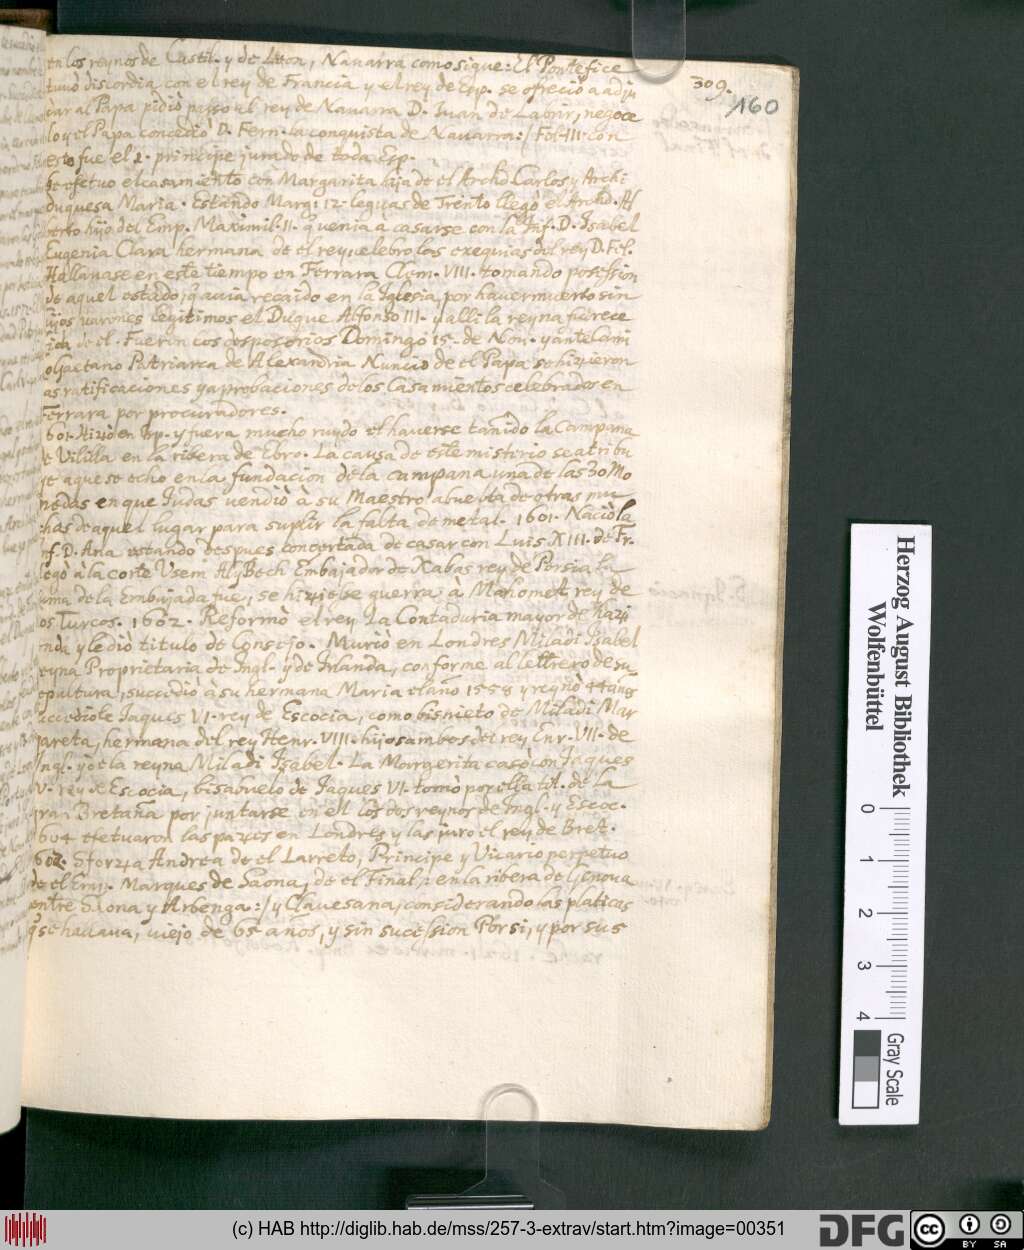 309.
160
en los reynos de Castil. y de Leon, Navarra como sigue: El Pontefice
tuuò discordia con el rey de Francia y el rey de Esp. se ofreciò a adju
car al Papa pidiò passo al rey de Nauarra D. Iuan de Labrir, negoce
lo y el Papa concediò D. Fern. la conquista de Nauarra:/ Fel. III. con
esto fue el 2. principe jurado de toda Esp.
Se efetuo el casamiento con Margarita hija de el Archd. Carlos y Arch:
duquesa Maria. Estando Marg: 12. leguas de Trento llegò el Archd. Al
berto hijo del Emp. Maximil. II. q̃ venia à casarse con la Inf. D. Isabel
Eugenia Clara hermana de el rey celebro las exequias del rey D. Fel.
Hallauase en este tiempo en Ferrara Clem. VIII. tomando possession
de aquel estado q̃ auia recaido en la Iglesia por hauer muerto sin
hijos varones legitimos el Duque Alfonso III. y alli la reyna fu rece
uida de el. Fueron los desposorios Domingo 15. de Nou. y ante Cam
olGaetano Patriarca de Alexandria Nuncio de el Papa se hizieron
as ratificaciones y aprobaciones de los Casamientos celebrados en
Ferrara por procuradores.
601. Hiziò en Esp. y fuera mucho ruydo el hauerse tañido la Campana
de Vililla en la ribera de Ebro. La causa de este misterio se atribu
ye aque se echo en la fundacion de la campana una de las 30 Mo
nedas en que Iudas vendiò à su Maestro abuelta de otras mu
chas de aquel lugar para suplir la falta de metal. 1601. Naciò la
nf. D. Ana estando despues concertada de casar con Luis XIII. de Fr.
legò à la corte Vsem Aly Bech Embajador de Xabas rey de Persia la
uma de la Embajada fue, se hiziesse guerra à Mahomet rey de
os Turcos. 1602. Reformò el rey La Contaduria mayor de hazi
enda y le diò titulo de Consejo. Muriò en Londres Miladi Isabel
reyna Proprietaria de Ingl. y de Irlanda, conforme al lettrero de su
epultura, sucediò à su hermana Maria el año 1558 y reynò 44 años
uccediole Jaques VI. rey de Escocia, como bisnieto de Miladi Mar
gareta, hermana del rey Henr. VIII. hijos ambos del rey Enr. VII. de
Ingl. y de la reyna Miladi Isabel. La Margerita casò con Jaques
V. rey de Escocia, bisabuelo de Jaques VI. tomò por ella tit. de La
gran Bretaña por juntarse en el los dos reynos de Ingl. y Escoc.
604 efetuaron las pazes en Londres y las juro el rey de Bret.
602. Sforzia Andrea de el Larreto, Principe y Vicario perpetuo
de el Emp. Marques de Saona, de el Final,: en la ribera de Genoua
entre Saona y Arbenga:/ y Clauesana, considerando las platicas
q̃ se hallaua, viejo de 65 años, y sin sucession Por si, y por sus
Herzog August Bibliothek
Wolfenbüttel
0 1 2 3 4
Gray Scale
(c) HAB http://diglib.hab.de/mss/257-3-extrav/start.htm?image=00351
DFG
cc
BY SA